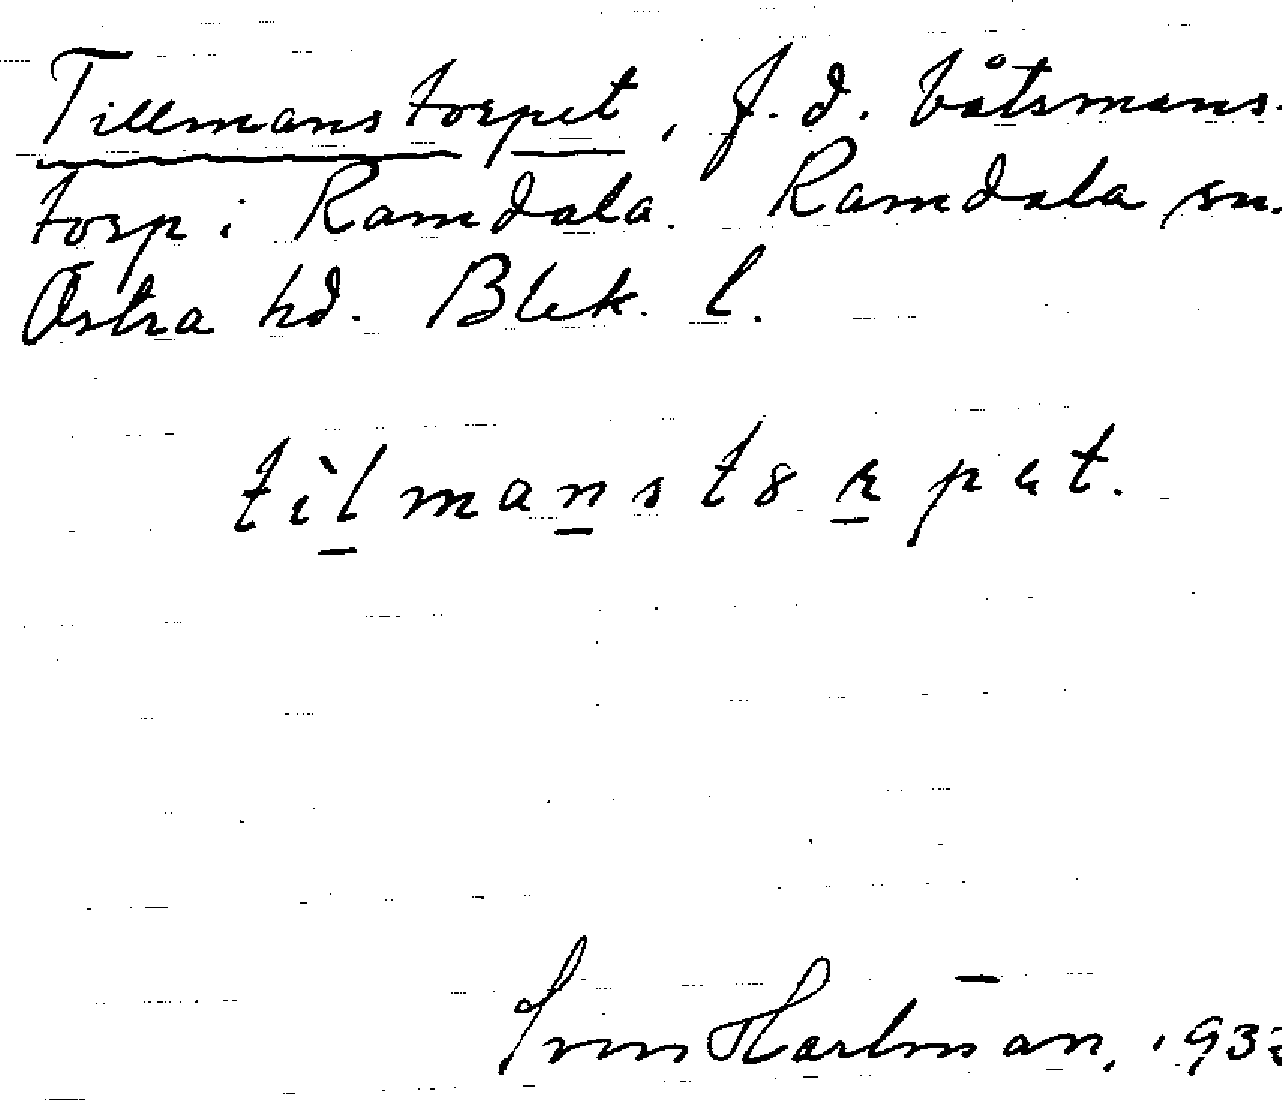 Tillmanstorpet, f.d. båtsmans-
torp i Ramdala. Ramdala sn.
Östra hd. Blek. l.
tìlmanst8rpet.
Sven Hartman, 193